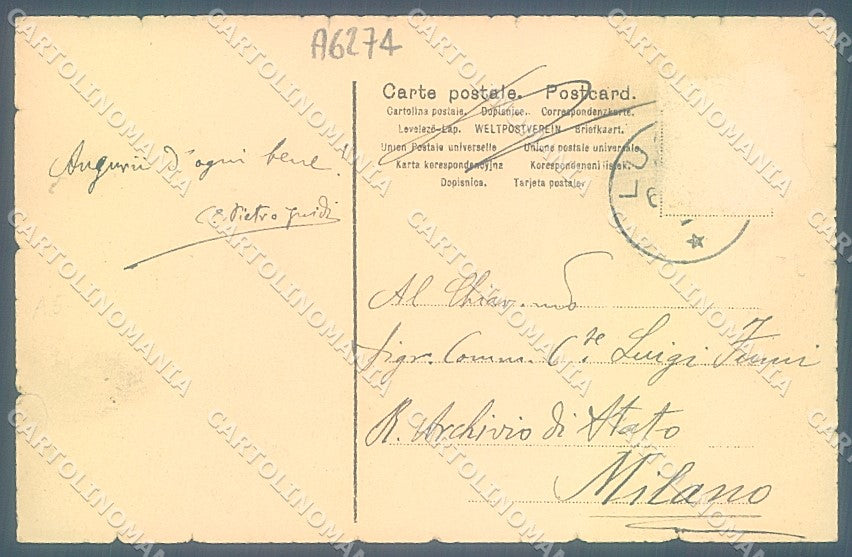 A6274
Carte postale. Postcard.
Cartolina postale. Dopisnice. Correspondenzkarte.
Levelező-Lap. WELTPOSTVEREIN Briefkaart.
Union Postale universelle Unione postale universale
Karta korespondencyjna Korespondenční lístek.
Dopisnica. Tarjeta postale
Auguri d'ogni bene!
Pietro Guidi
LU
Al Chiar.mo
Sigr. Comm. C.re Luigi Fumi
R. Archivio di Stato
Milano
CARTOLINOMANIA